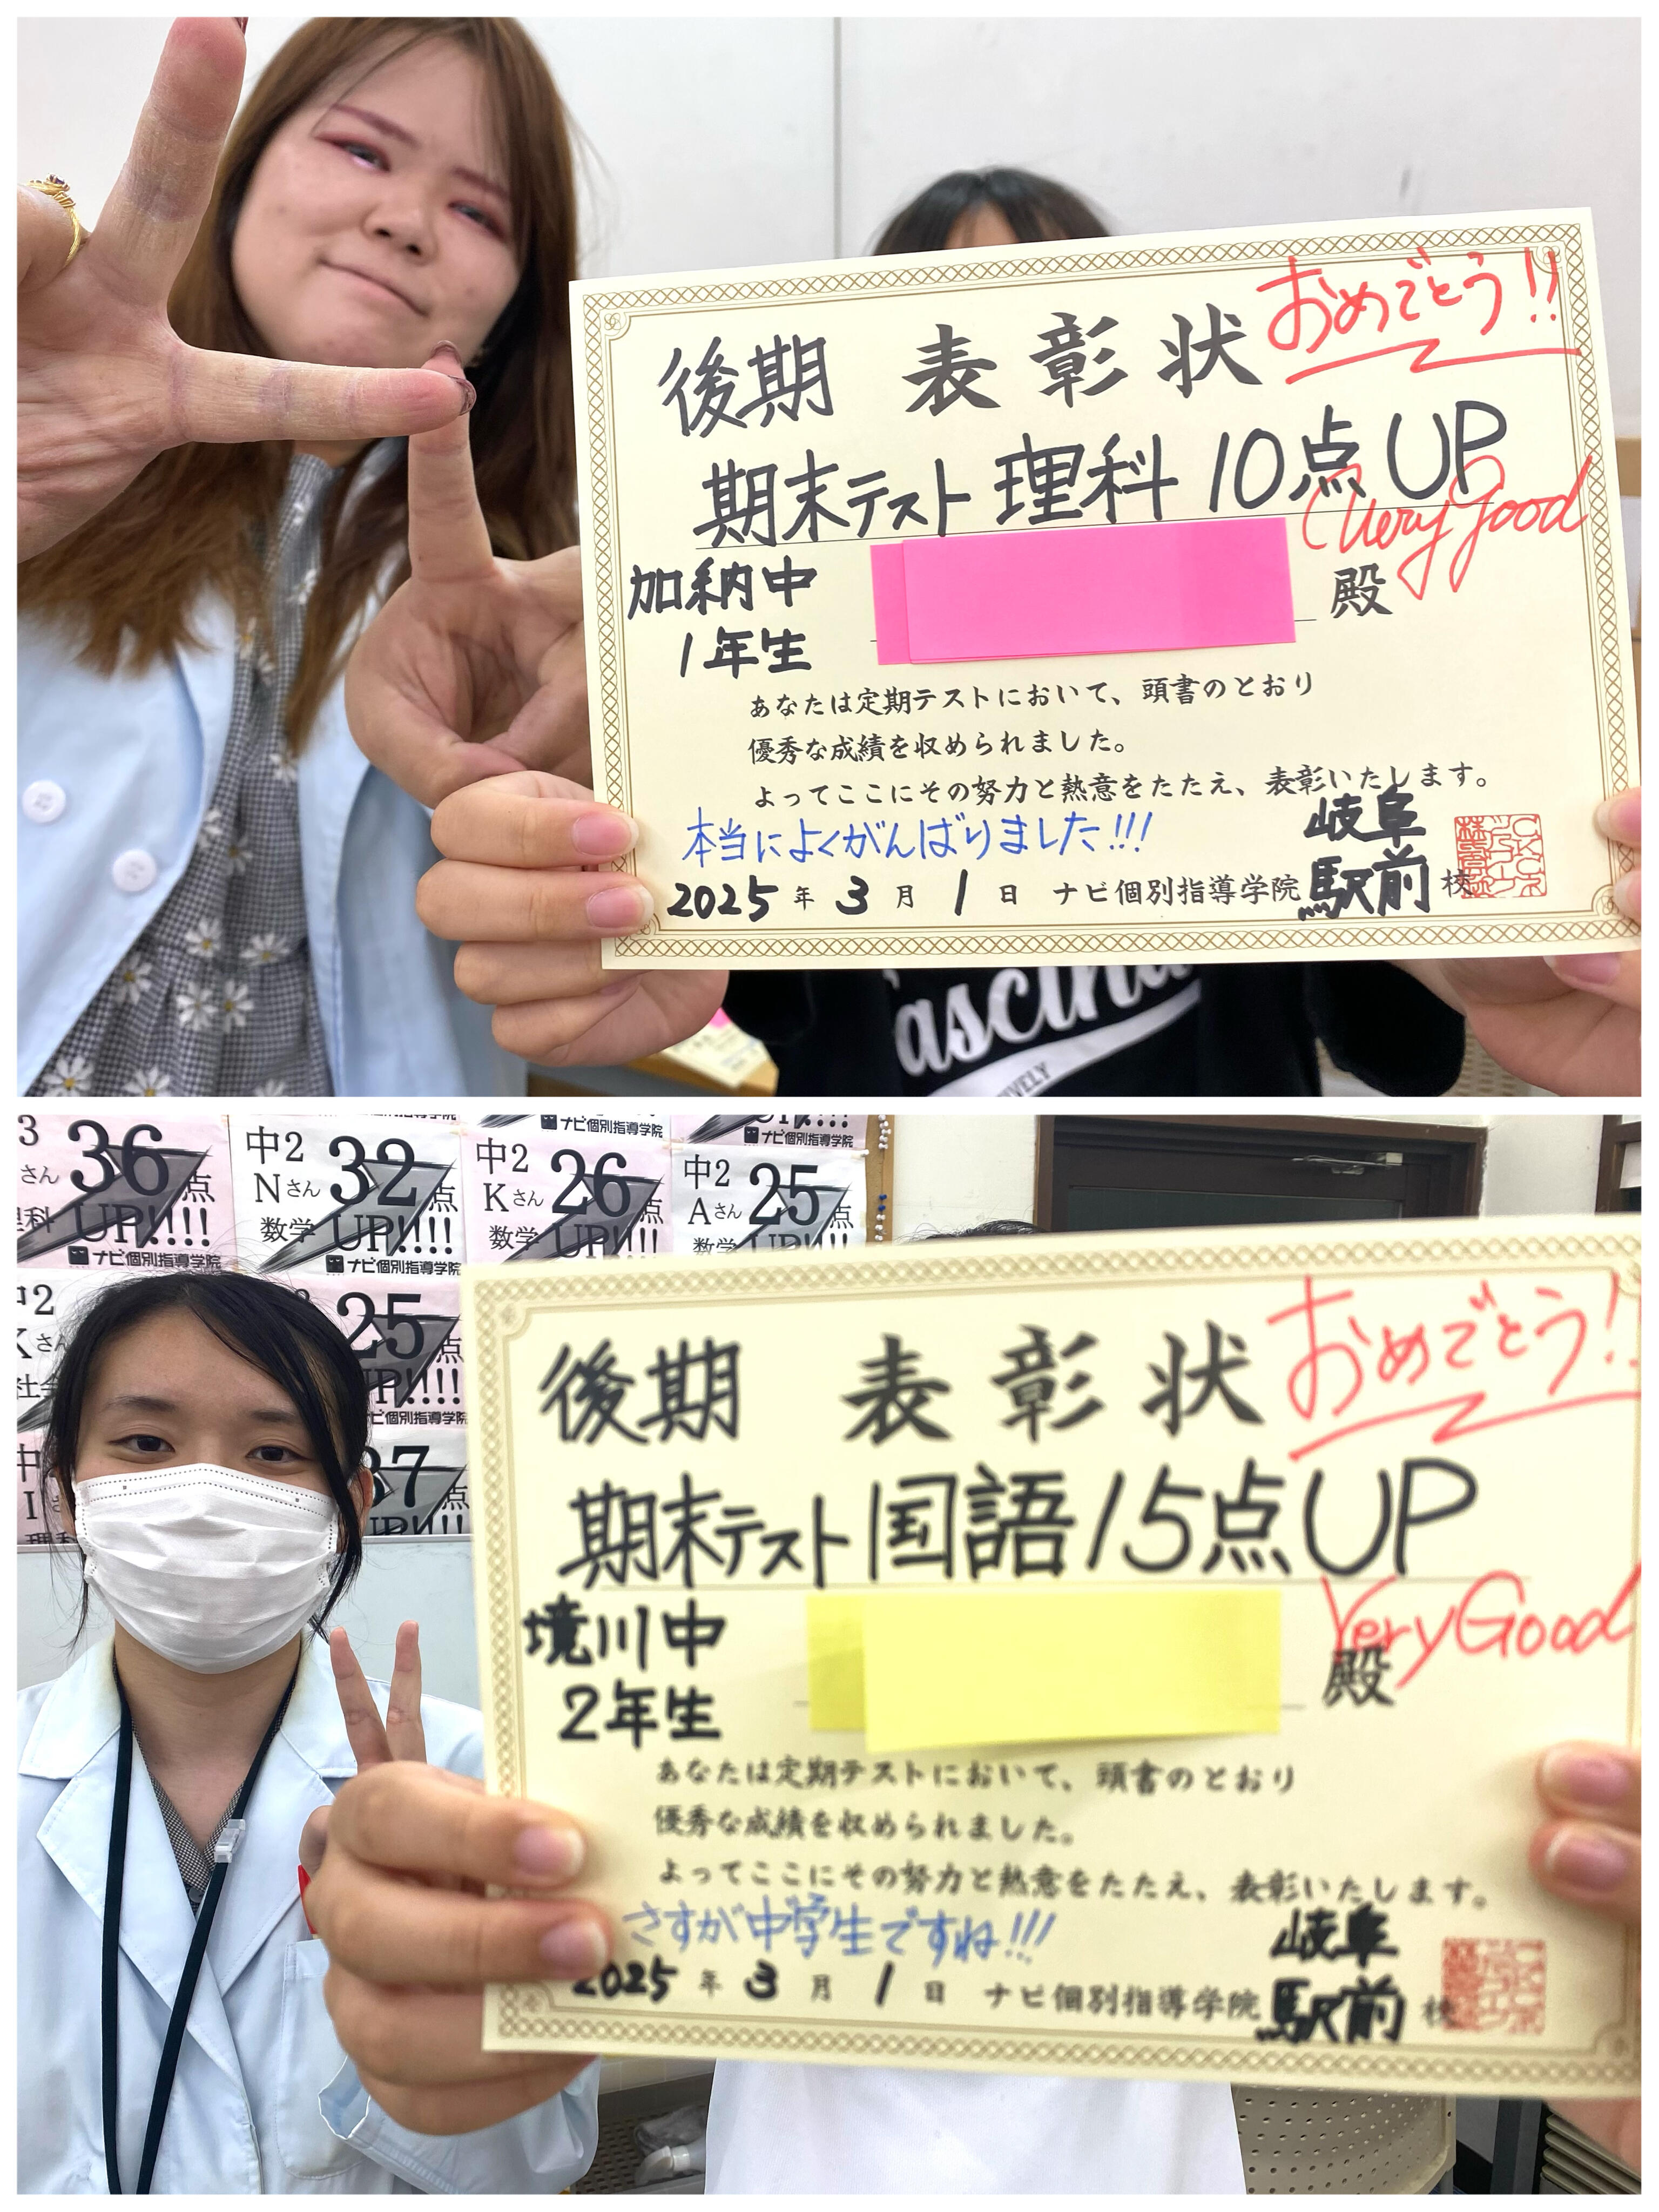 おめでとう!!
後期 表彰状
期末テスト 理科 10点UP
Very good
加納中
1年生
殿
あなたは定期テストにおいて、頭書のとおり
優秀な成績を収められました。
よってここにその努力と熱意をたたえ、表彰いたします。
本当によくがんばりました!!!
岐阜
2025年3月1日 ナビ個別指導学院 駅前 校
ナビ個別指導学院
36点
さん
UP!!!!
ナビ個別指導学院
中2
Nさん 32点
数学 UP!!!!
ナビ個別指導学院
中2
Kさん 26点
数学 UP!!!!
中2
Aさん 25点
数学 UP!!!!
25点
ナビ個別指導学院
おめでとう!!
後期 表彰状
期末テスト 国語 15点UP
Very Good
境川中
2年生
殿
あなたは定期テストにおいて、頭書のとおり
優秀な成績を収められました。
よってここにその努力と熱意をたたえ、表彰いたします。
さすが中学生ですね!!!
岐阜
2025年3月1日 ナビ個別指導学院 駅前 校